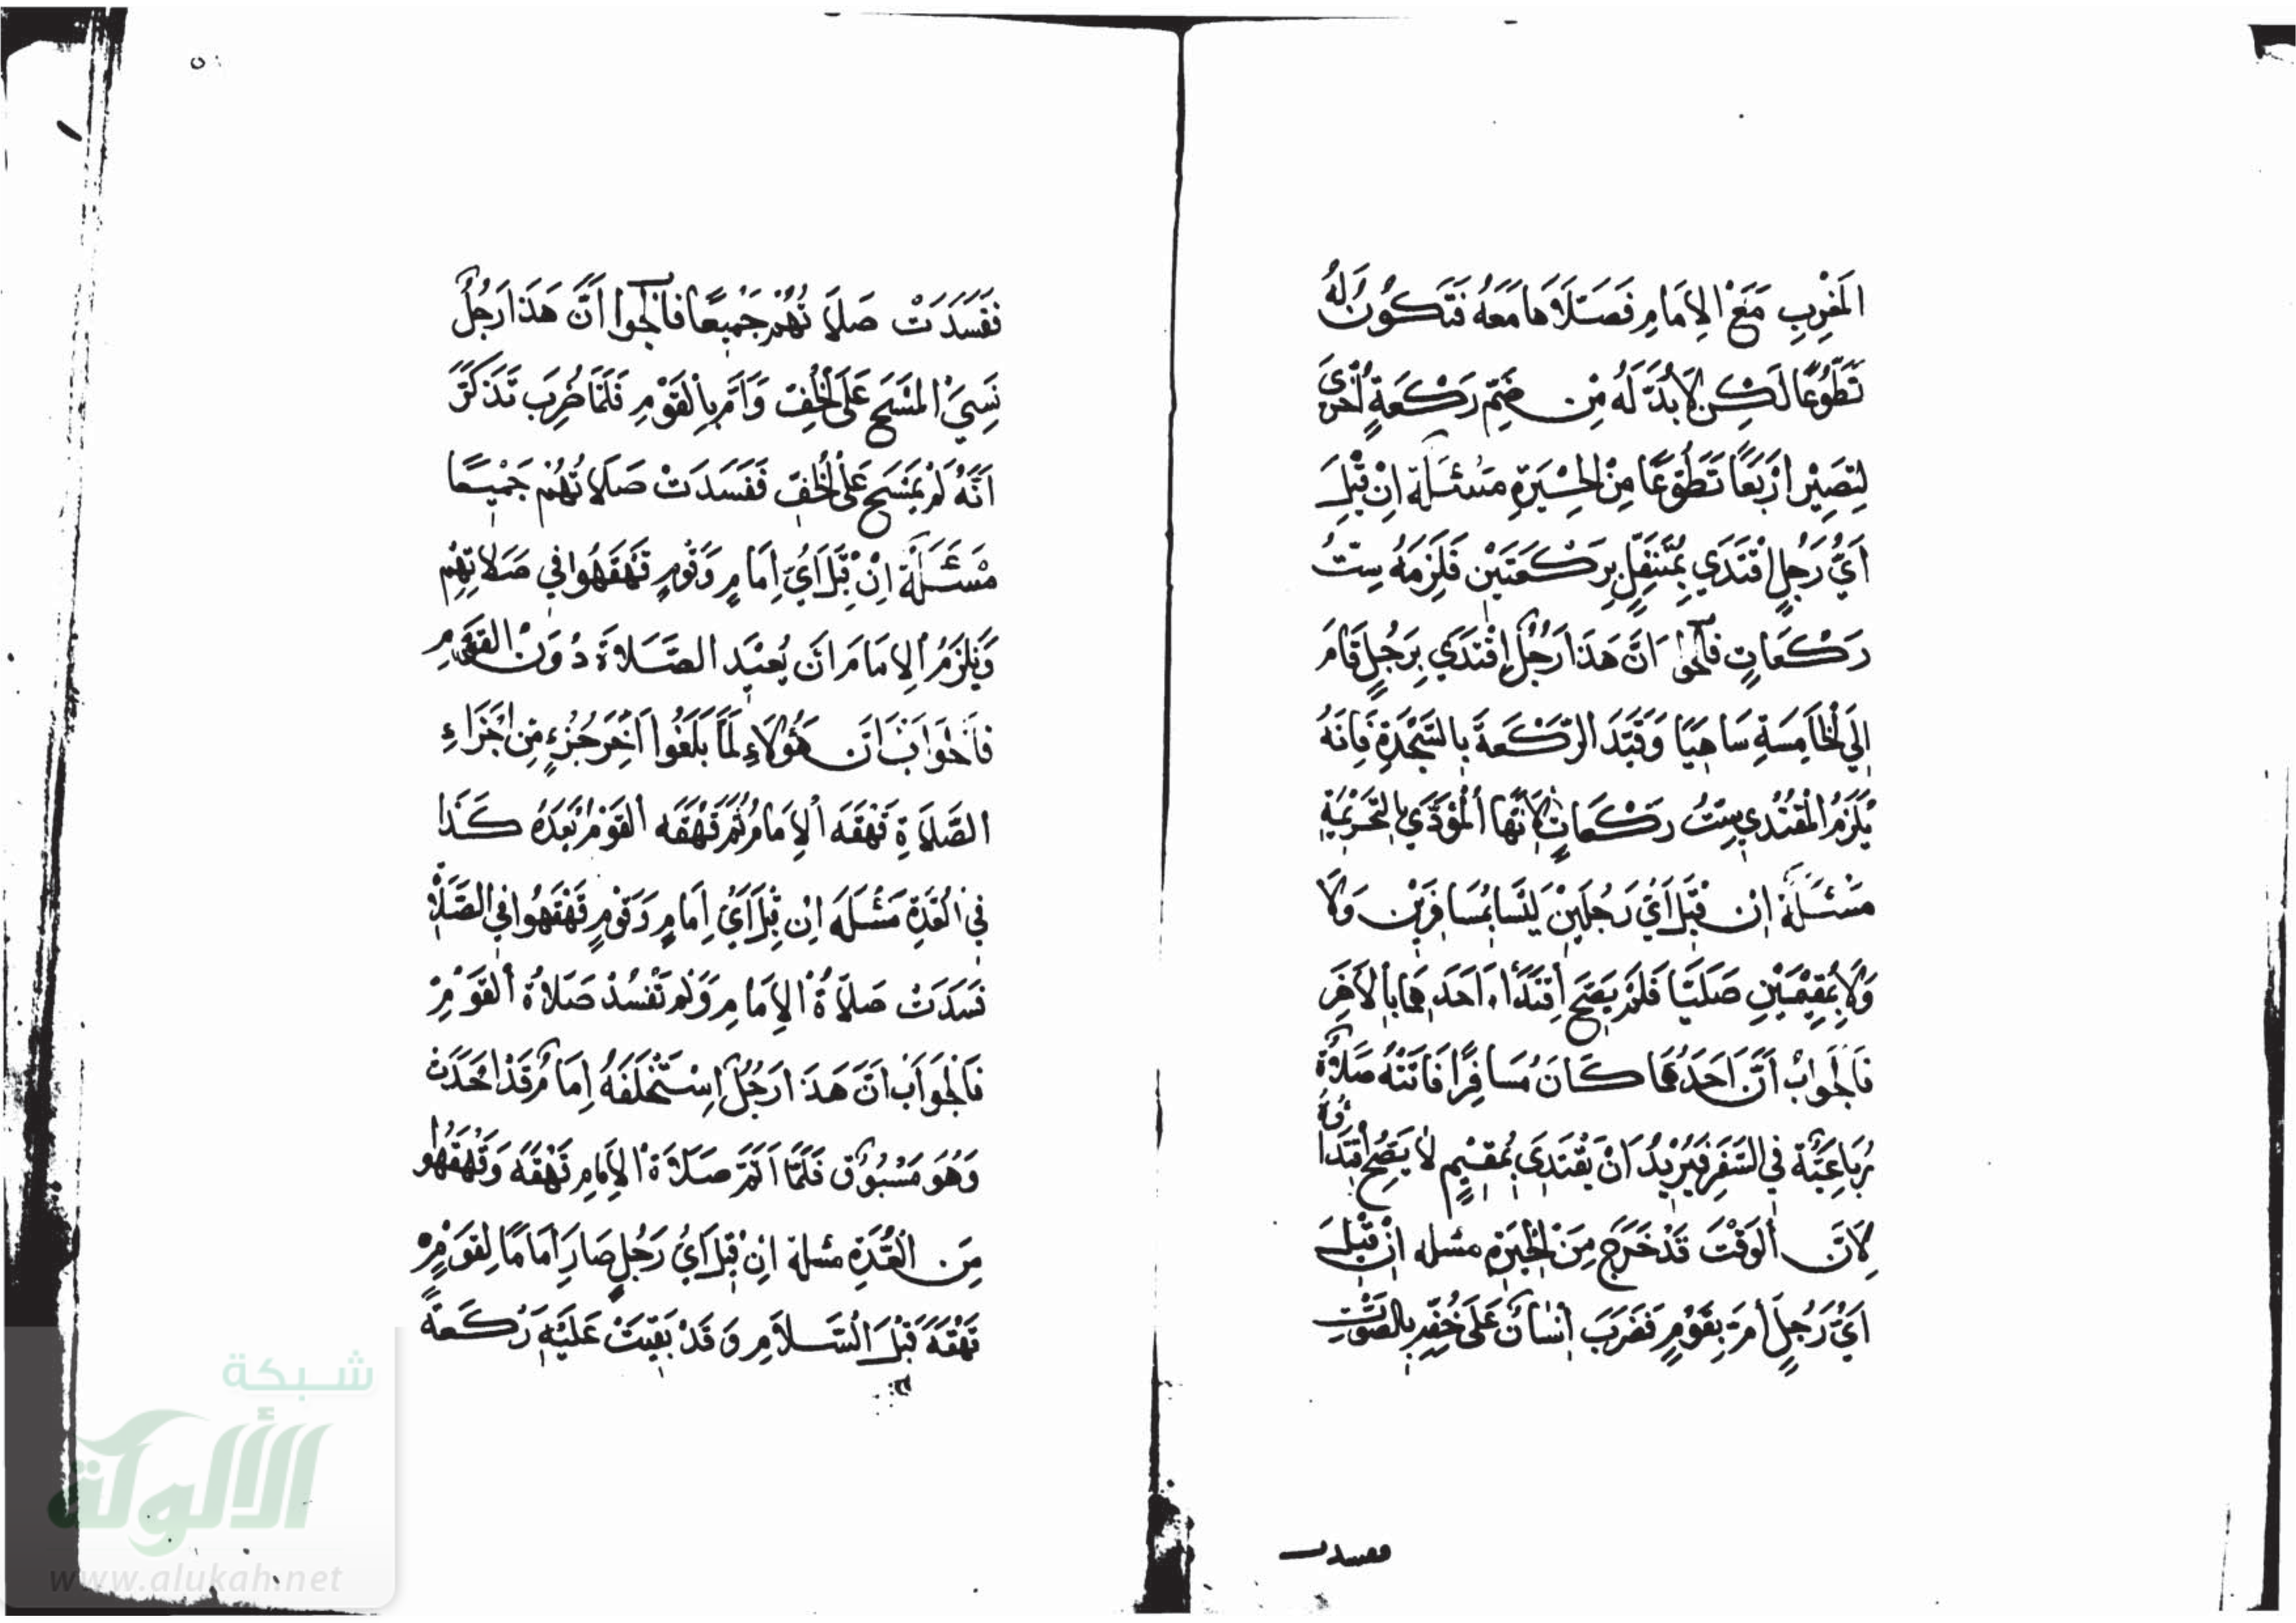 المَغْرِبِ مَعَ الاِمَامِ فَصَلَاهَا مَعَهُ فَتَكُونُ لَهُ
تَطَوُّعًا لَكِن لَا بُدَّ لَهُ مِن ضَمِّ رَكْعَةٍ اُخْرَى
لِتَصِيْر اَرْبَعًا تَطَوُّعًا مِنَ مَسْئَلَة اِنْ قِيْلَ
اَيُّ رَجُلٍ اِقْتَدَى بِمُتَنَفِّلٍ بِرَكْعَتَيْنِ فَلَزِمَهُ سِتُّ
رَكْعَاتٍ فالجوا اَنَّ هَذَا رَجُلٌ اِقْتَدَي بِرَجُلٍ قَامَ
اِلَي الْخَامِسَةِ سَاهِيًا وَقَيَّدَ الرَّكْعَةَ بِالسَّجْدَةِ فَاِنَّهُ
يَلْزَمُ الْمُقْتَدِي سِتُّ رَكْعَاتٍ لِاَنَّهَا الْمُؤَدَّي بِالتَّحْرِيْمَةِ
مَسْئَلَة اِن قِيْلَ اَيُّ رَجُلَيْنِ لَيْسَا بِمُسَافِرَيْنِ وَلَا
وَلَا بِمُقِيْمَيْنِ صَلَّيَا فَلَمْ يَصِحَّ اِقْتِدَاءُ اَحَدِهِمَا بِالْاَخَرِ
فَالْجَوابُ اَنَّ اَحَدَهُمَا كَانَ مُسَافِرًا فَاتَتْهُ صَلَاةٌ
رُبَاعِيَّة في السَّفَرِ فَيُرِيْدُ اَنْ يَقْتَدِيَ بِمُقِيْمٍ لَا يَصِحُّ اِقْتِدَاؤُهُ
لِاَنَّ الوَقْتَ قَدْ خَرَجَ مِنَ مسئله اِنْ قِيْلَ
اَيُّ رَجُلٍ اَمَّ بِقَوْمٍ فَضَرَبَ اِنْسَانٌ عَلَى خُفِّهِ بِالصَّوْتِ
ففسدت
فَفَسَدَتْ صَلَا تُهُمْ جَمِيْعًا فالجوا اَنَّ هَذَا رَجُلٌ
نَسِيَ المَسْحَ عَلَى الْخُفِّ وَاَمَّ بِالْقَوْمِ فَلَمَّا ضُرِبَ تَذَكَّرَ
اَنَّهُ لَمْ يَمْسَحِ عَلَى الْخُفِّ فَفَسَدَتْ صَلَا تُهُمْ جَمِيْعًا
مَسْئَلَة اِنْ قِيْلَ اَيُّ اِمَامٍ وَقَوْمٍ قَهْقَهُوا في صَلَاتِهِمْ
وَيَلْزَمُ الاِمَامَ اَن يُعِيْدَ الصَّلَاةَ دُوْنَ القَوْمِ
فَاَلْجَوَابُ اَنَّ هَؤُلَاءِ لَمَّا بَلَغُوا آخِرَ جُزْءٍ مِن اَجْزَاءِ
الصَّلَاةِ قَهْقَهَ الْاِمَامُ ثُمَّ قَهْقَهَ القَوْمُ بَعْدَهُ كَذَا
في الْعُدَّةِ مَسْئَلَه اِنْ قِيْلَ اَيُّ اِمَامٍ وَقَوْمٍ قَهْقَهُوا فِي الصَّلَاةِ
فَسَدَتْ صَلَاةُ الْاِمَامِ وَلَمْ تَفْسُدْ صَلَاةُ القَوْمِ
فَالْجَوَابُ اَنَّ هَذَا رَجُلٌ اِسْتَخْلَفَهُ اِمَامٌ قَدْ اَحْدَثَ
وَهُوَ مَسْبُوْقٌ فَلَمَّا اَتَمَّ صَلَاةَ الْاِمَامِ قَهْقَهَ وَقَهْقَهُوا
مِن الْعُدَّةِ مسئلة اِنْ قِيْلَ اَيُّ رَجُلٍ صَارَ اِمَامًا لِقَوْمٍ
قَهْقَهَ قَبْلَ السَّلَامِ وَقَدْ بَقِيَتْ عَلَيْهِ رَكْعَةٌ
شبكة
الألوكة
www.alukah.net